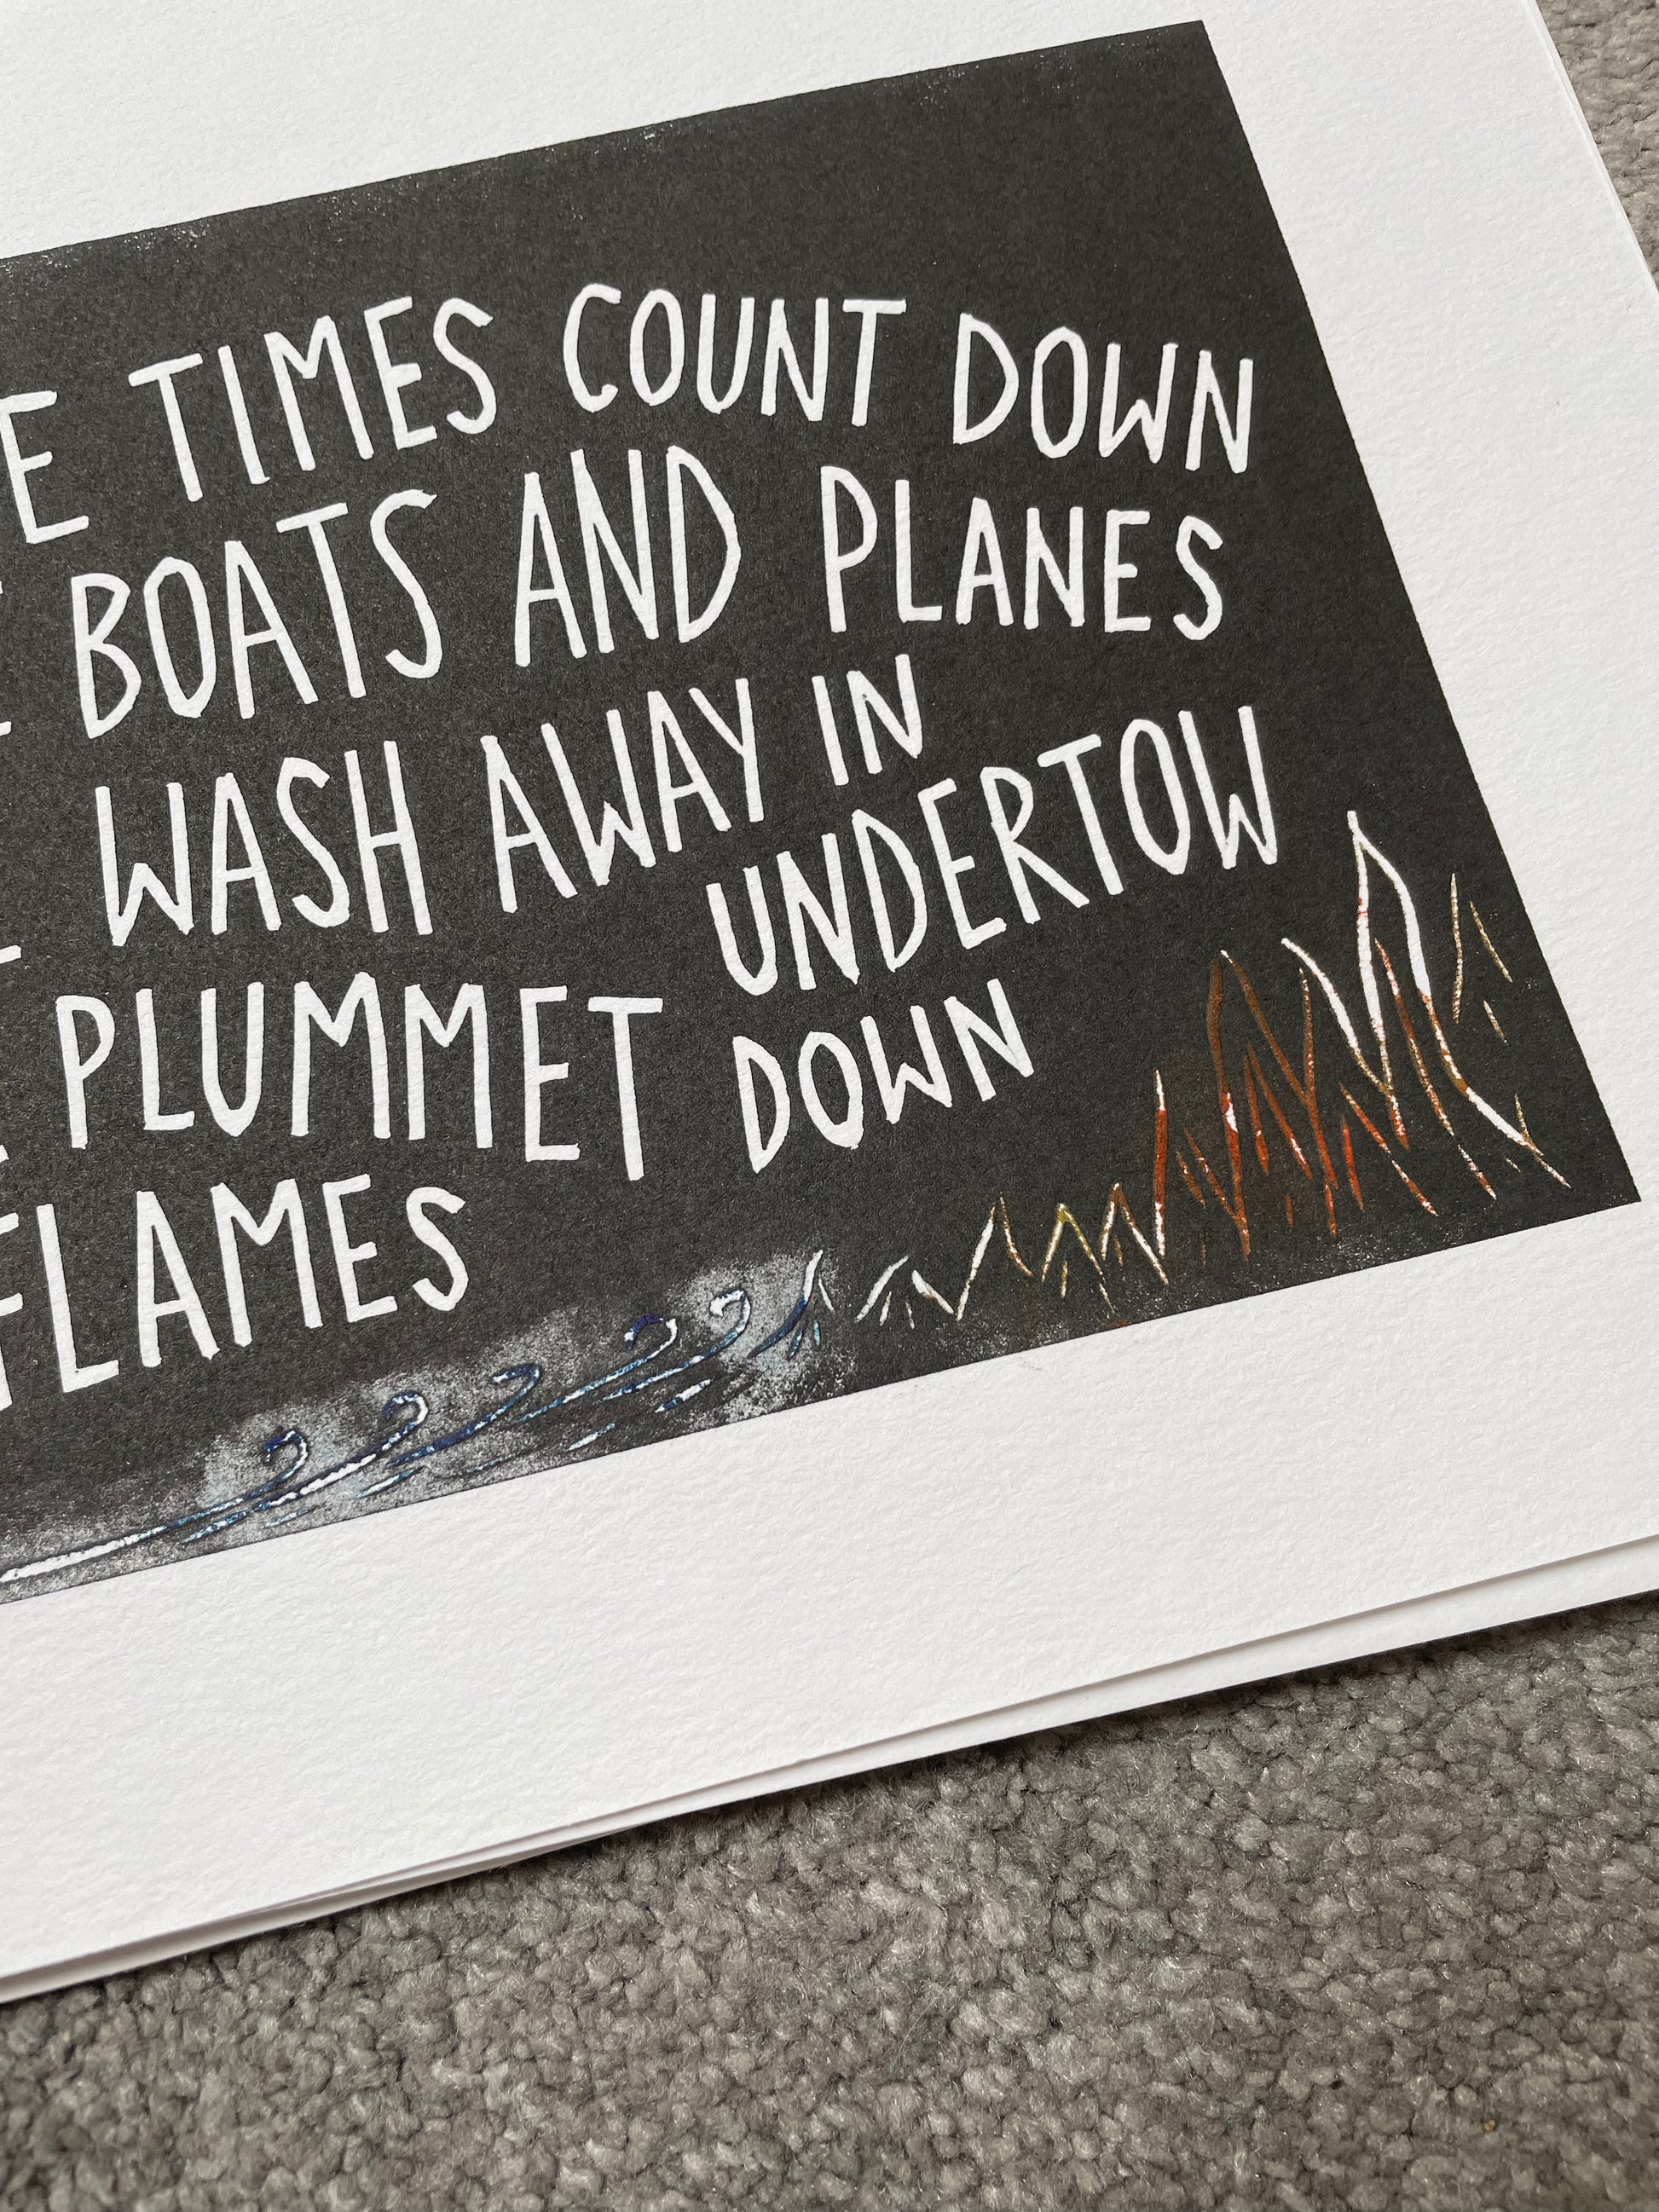 E TIMES COUNT DOWN
BOATS AND PLANES
WASH AWAY IN
UNDERTOW
PLUMMET DOWN
FLAMES